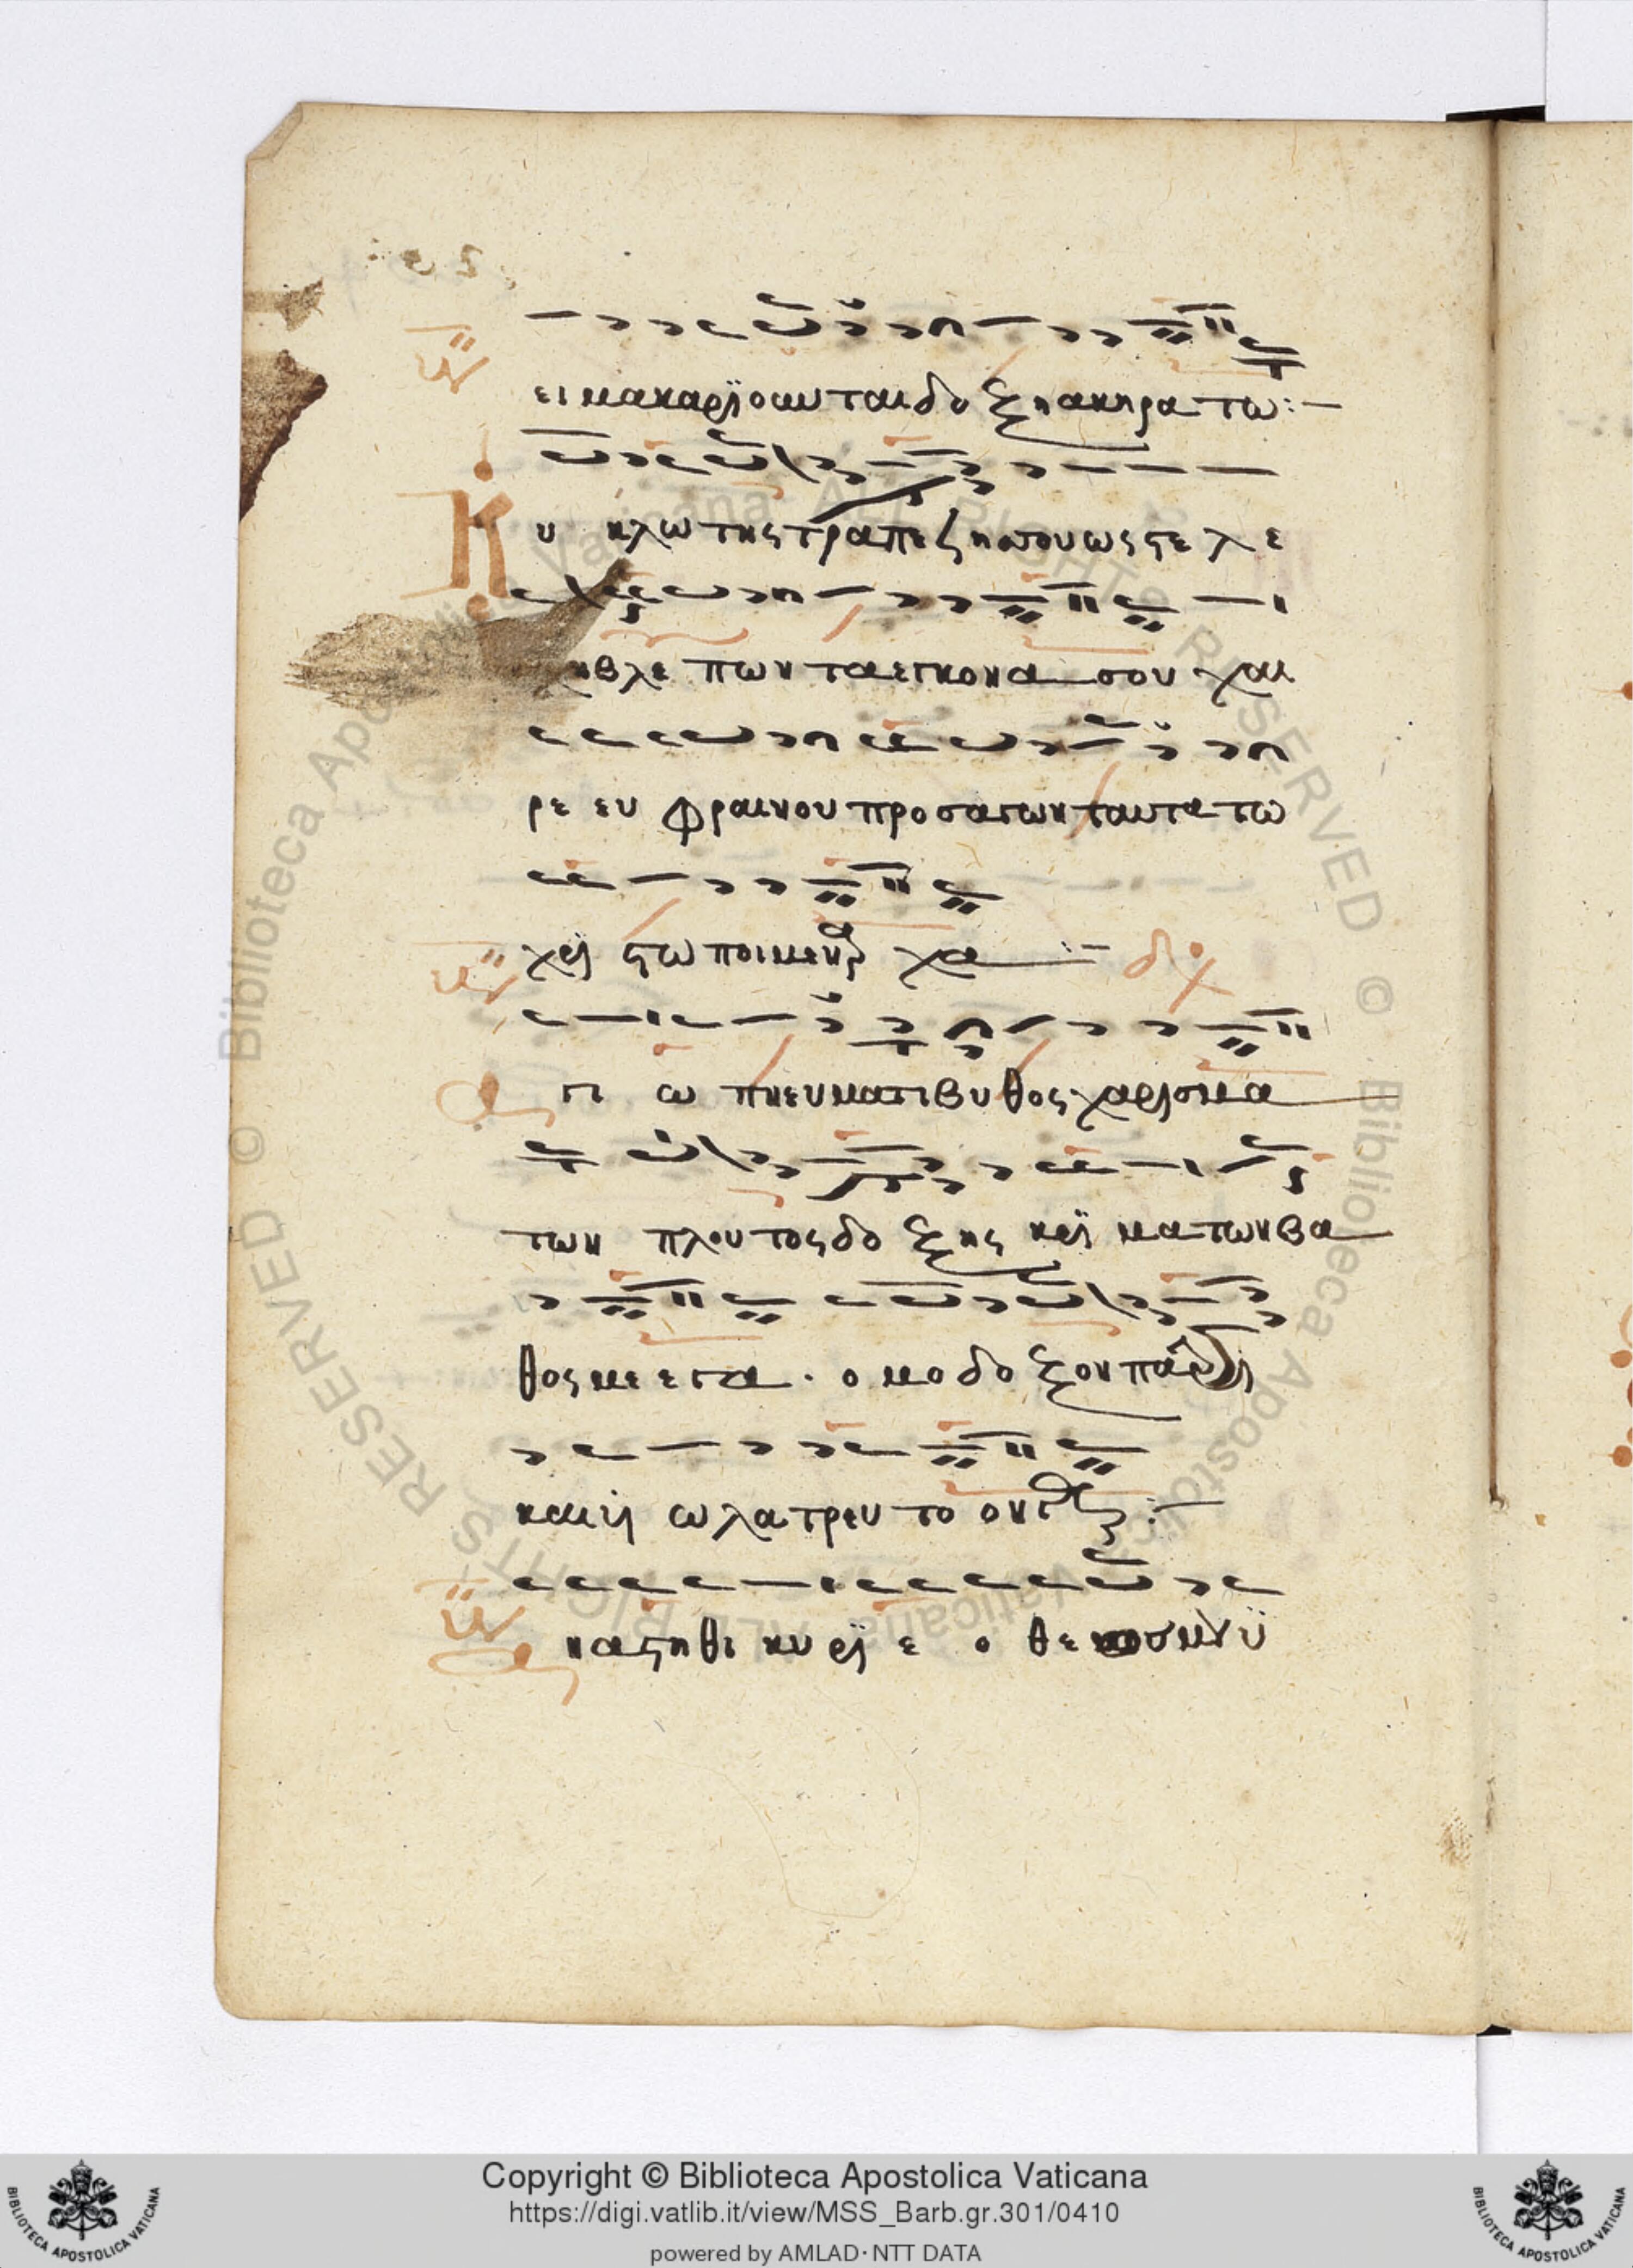 ει μακαριοωνται δοξη ακηρατω :–
Κυκλω της τραπεζης σου ως στελε
χη βλεπων τα εκγονα σου χαι
ρε ευφραινου προσαγων ταυτα τω
χω τω ποιμεναρχα :–
Αγιω πνευματι βυθος χαρισμα
των πλουτος δοξης κριματων βα
θος μεγα · ομοδοξον πατρι
και υιω λατρευτον γαρ :–
Αναστηθι κυριε ο θεος μου υ
Copyright © Biblioteca Apostolica Vaticana
https://digi.vatlib.it/view/MSS_Barb.gr.301/0410
powered by AMLAD·NTT DATA
BIBLIOTECA APOSTOLICA VATICANA
BIBLIOTECA APOSTOLICA VATICANA